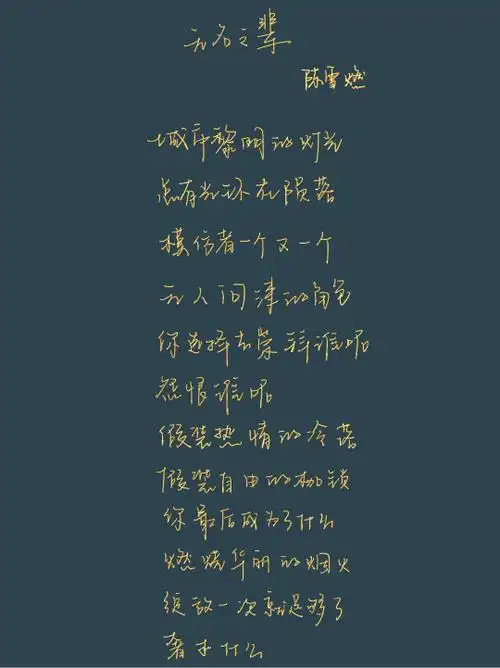 无名之辈
陈雪燃
城市黎明的灯光
总有光环在陨落
模仿者一个又一个
无人问津的角色
你选择去崇拜谁呢
怨恨谁呢
假装热情的冷落
假装自由的枷锁
你最后成为了什么
燃烧华丽的烟火
绽放一次就足够了
奢求什么